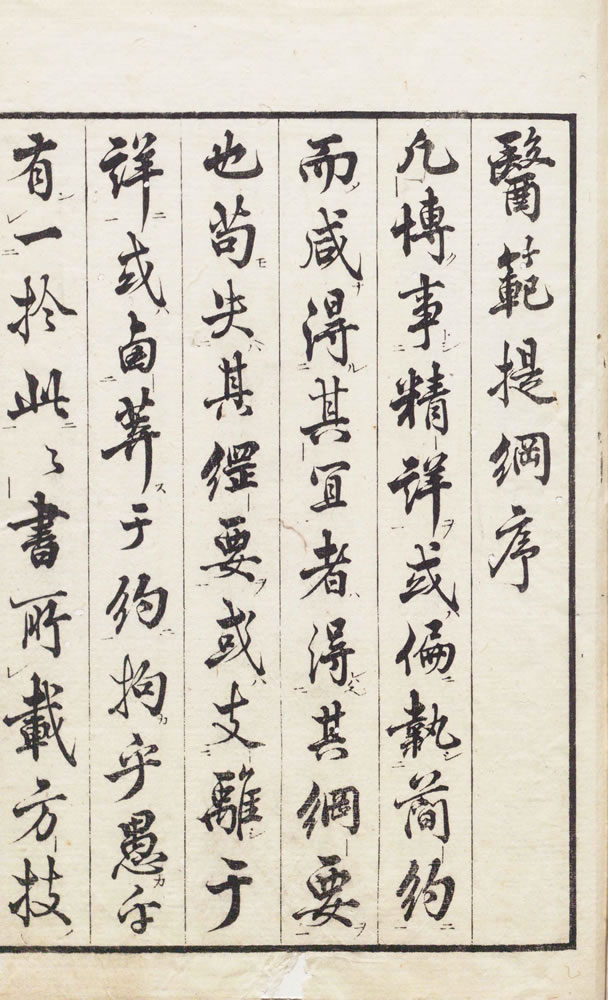 醫範提綱序
凡博事精詳或偏執簡約
而咸得其宜者得其綱要
也苟失其綱要或支離于
詳或鹵莽于約拘乎愚乎
有一於此々書所載方技